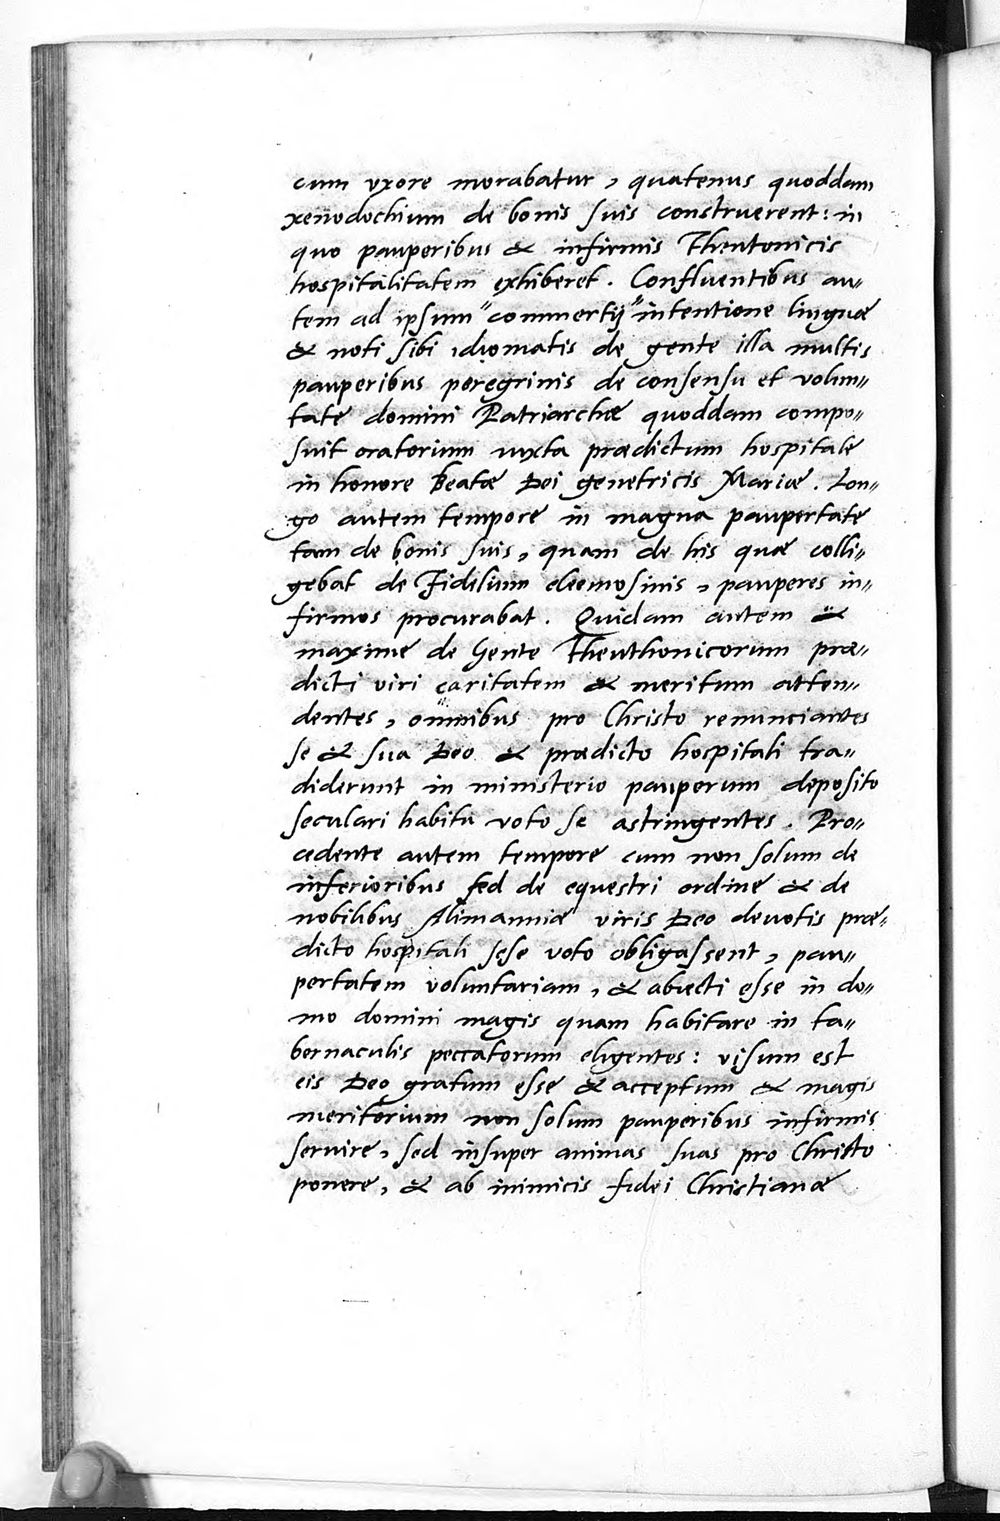 cum vxore morabatur, quatenus quoddam
xenodochium de bonis suis construerent: in
quo pauperibus & infirmis Theutonicis
hospitalitatem exhiberet. Confluentibus au„
tem ad ipsum "commertij" intentione linguæ
& noti sibi idiomatis de gente illa multis
pauperibus peregrinis de consensu et volun„
tate domini Patriarchæ quoddam compo„
suit oratorium iuxta prædictum hospitale
in honore Beatæ Dei genetricis Mariæ. Lon„
go autem tempore in magna paupertate
tam de bonis suis, quam de his quæ colli„
gebat de Fidelium eleemosinis, pauperes in„
firmos procurabat. Quidam autem &
maxime de Gente Theuthonicorum præ„
dicti viri caritatem & meritum atten„
dentes, omnibus pro Christo renunciantes
se & sua Deo & prædicto hospitali tra„
diderunt in ministerio pauperum deposito
seculari habitu voto se astringentes. Pro„
cedente autem tempore cum non solum de
inferioribus sed de equestri ordine & de
nobilibus Alimanniæ viris Deo deuotis præ„
dicto hospitali sese voto obligassent, pau„
pertatem voluntariam, & abiecti esse in do„
mo domini magis quam habitare in ta„
bernaculis peccatorum eligentes: visum est
eis Deo gratum esse & acceptum & magis
meritorium non solum pauperibus infirmis
seruire, sed insuper animas suas pro Christo
ponere, & ab inimicis fidei Christianæ